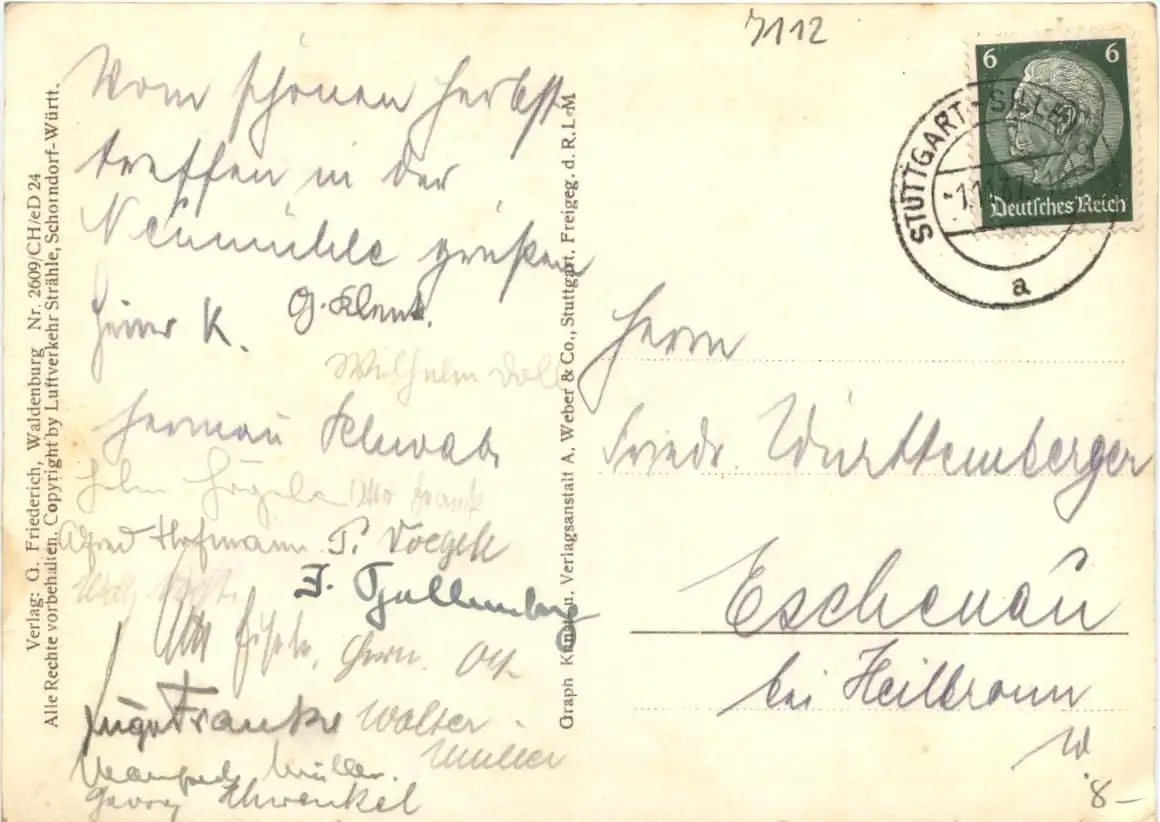 7112
Vom schönen Herbst
treffen in der
Neumühle grüßen
K. G. Klenk.
Wilhelm Doll
Herman
Otto Frank
Alfred Hofmann. P.
Otto Ott
Franke Walter
Müller
Manfred Müller.
Georg Schwenkel
Verlag: G. Friederich, Waldenburg Nr. 2609/CH/eD 24
Alle Rechte vorbehalten. Copyright by Luftverkehr Strähle, Schorndorf-Württ.
Graph Kunstau. Verlagsanstalt A. Weber & Co., Stuttgart. Freigeg. d. R.L.M
6 6
Deutsches Reich
STUTTGART-SILLENB
-1.11.37
a
Herrn
Friedr. Württemberger
Eschenau
bei Heilbronn
W
8-